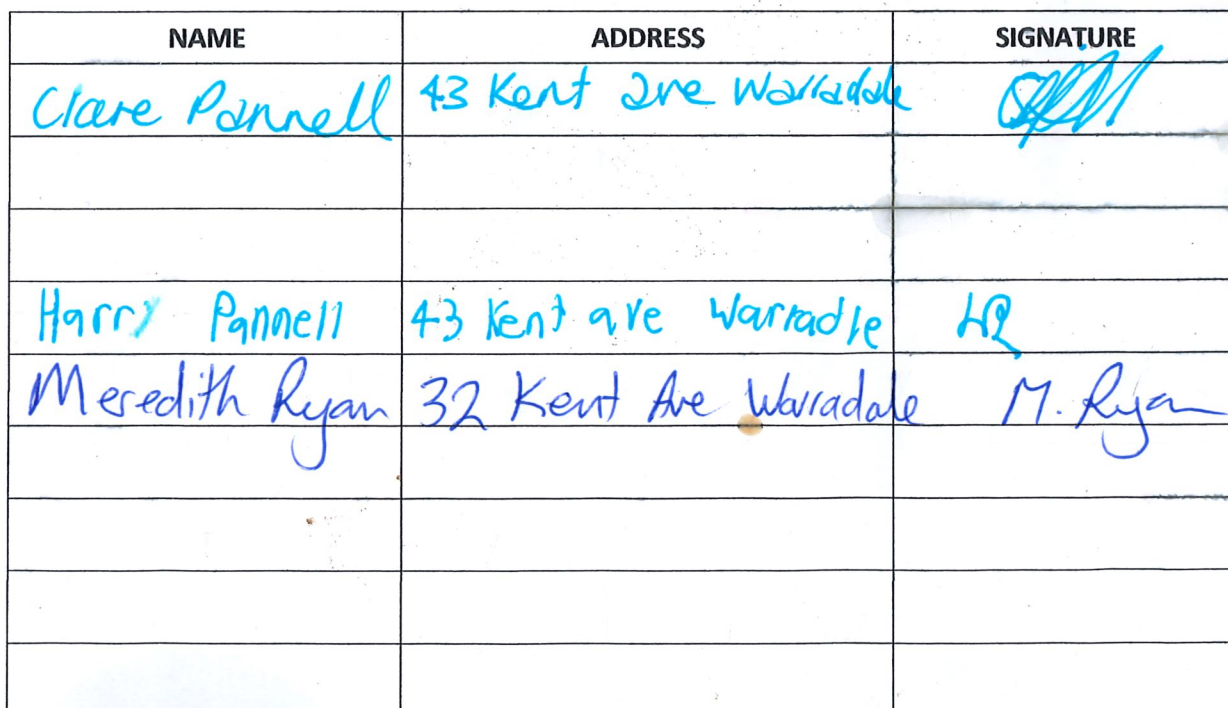 NAME ADDRESS SIGNATURE
Clare Pannell 43 Kent ave Warradale
Harry Pannell 43 Kent ave Warradle HP
Meredith Ryan 32 Kent Ave Warradale M. Ryan